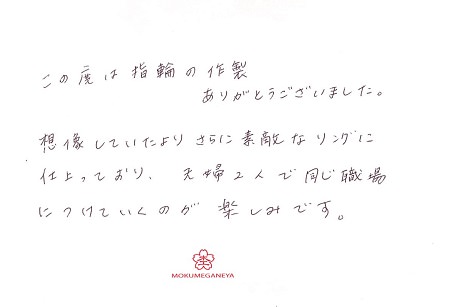 この度は指輪の作製
ありがとうございました。
想像していたよりさらに素敵なリングに
仕上っており、夫婦2人で同じ職場
につけていくのが楽しみです。
MOKUMEGANEYA